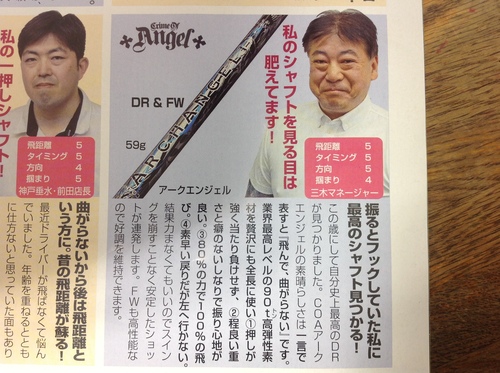 Crime Of
Angel
DR & FW
59g
ARCHANGEL
アークエンジェル
私のシャフトを見る目は
肥えてます!
飛距離 5
タイミング 5
方向 5
掴まり 5
三木マネージャー
振るとフックしていた私に
最高のシャフト見つかる!
この歳にして自分史上最高のDR
が見つかりました。COAアーク
エンジェルの素晴らしさは一言で
表すと「飛んで、曲がらない」です。
業界最高レベルの90t高弾性素
材を贅沢にも全長に使い①押しが
強く当たり負けせず、②程良い重
さと癖のないしなりで振り心地が
良い。③80%の力で100%の飛
び。④素早い戻りだが左へ行かない。
結果力まなくてもいいのでスイン
グを崩すことなく安定したショッ
トが連発します。FWも高性能な
ので好調を維持できます。
私の一押しシャフト!
飛距離 5
タイミング 5
方向 4
掴まり 4
神戸垂水・前田店長
曲がらないから後は飛距離と
いう方に。昔の飛距離が蘇る!
最近ドライバーが飛ばなくて悩ん
でいました。年齢を重ねるととも
に仕方ないと思っていた面もあり